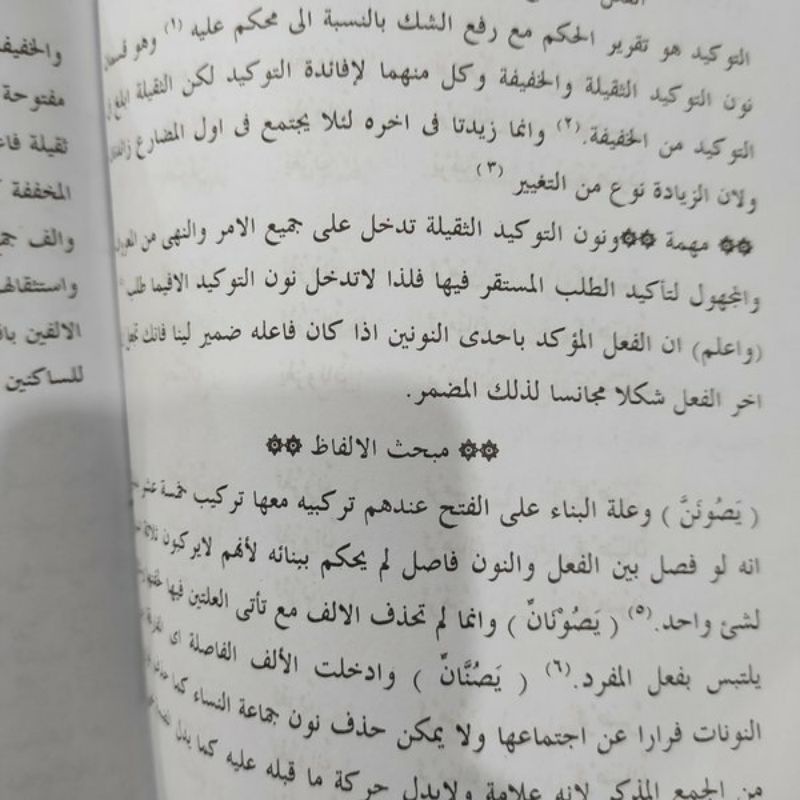 التوكيد هو تقرير الحكم مع رفع الشك بالنسبة الى محكم عليه (١) وهو قسمان
نون التوكيد الثقيلة والخفيفة وكل منهما لإفائدة التوكيد لكن الثقيلة ابلغ فى
التوكيد من الخفيفة.(٢) وانما زيدتا فى اخره لئلا يجتمع فى اول المضارع
ولان الزيادة نوع من التغيير (٣)
۞۞ مهمة ۞۞ونون التوكيد الثقيلة تدخل على جميع الامر والنهى من
والمجهول لتأكيد الطلب المستقر فيها فلذا لاتدخل نون التوكيد الافيما طلب
(واعلم) ان الفعل المؤكد باحدى النونين اذا كان فاعله ضمير لينا فانك تجعل
اخر الفعل شكلا مجانسا لذلك المضمر.
۞۞ مبحث الالفاظ ۞۞
( يَصُونَنَّ ) وعلة البناء على الفتح عندهم تركبيه معها تركيب خمسة عشر
انه لو فصل بين الفعل والنون فاصل لم يحكم ببنائه لأنهم لايركبون ثلاثة
لشئ واحد.(٥) ( يَصُوْنَانِّ ) وانما لم تحذف الالف مع تأتى العلتين فيها
يلتبس بفعل المفرد.(٦) ( يَصُنَّانِّ ) وادخلت الألف الفاصلة اى
النونات فرارا عن اجتماعها ولا يمكن حذف نون جماعة النساء كما
من الجمع المذكر لانه علامة ولايدل حركة ما قبله عليه كما يدل
والخفيفة
مفتوحة
ثقيلة
المخففة
والف
الالفين
للساكنين